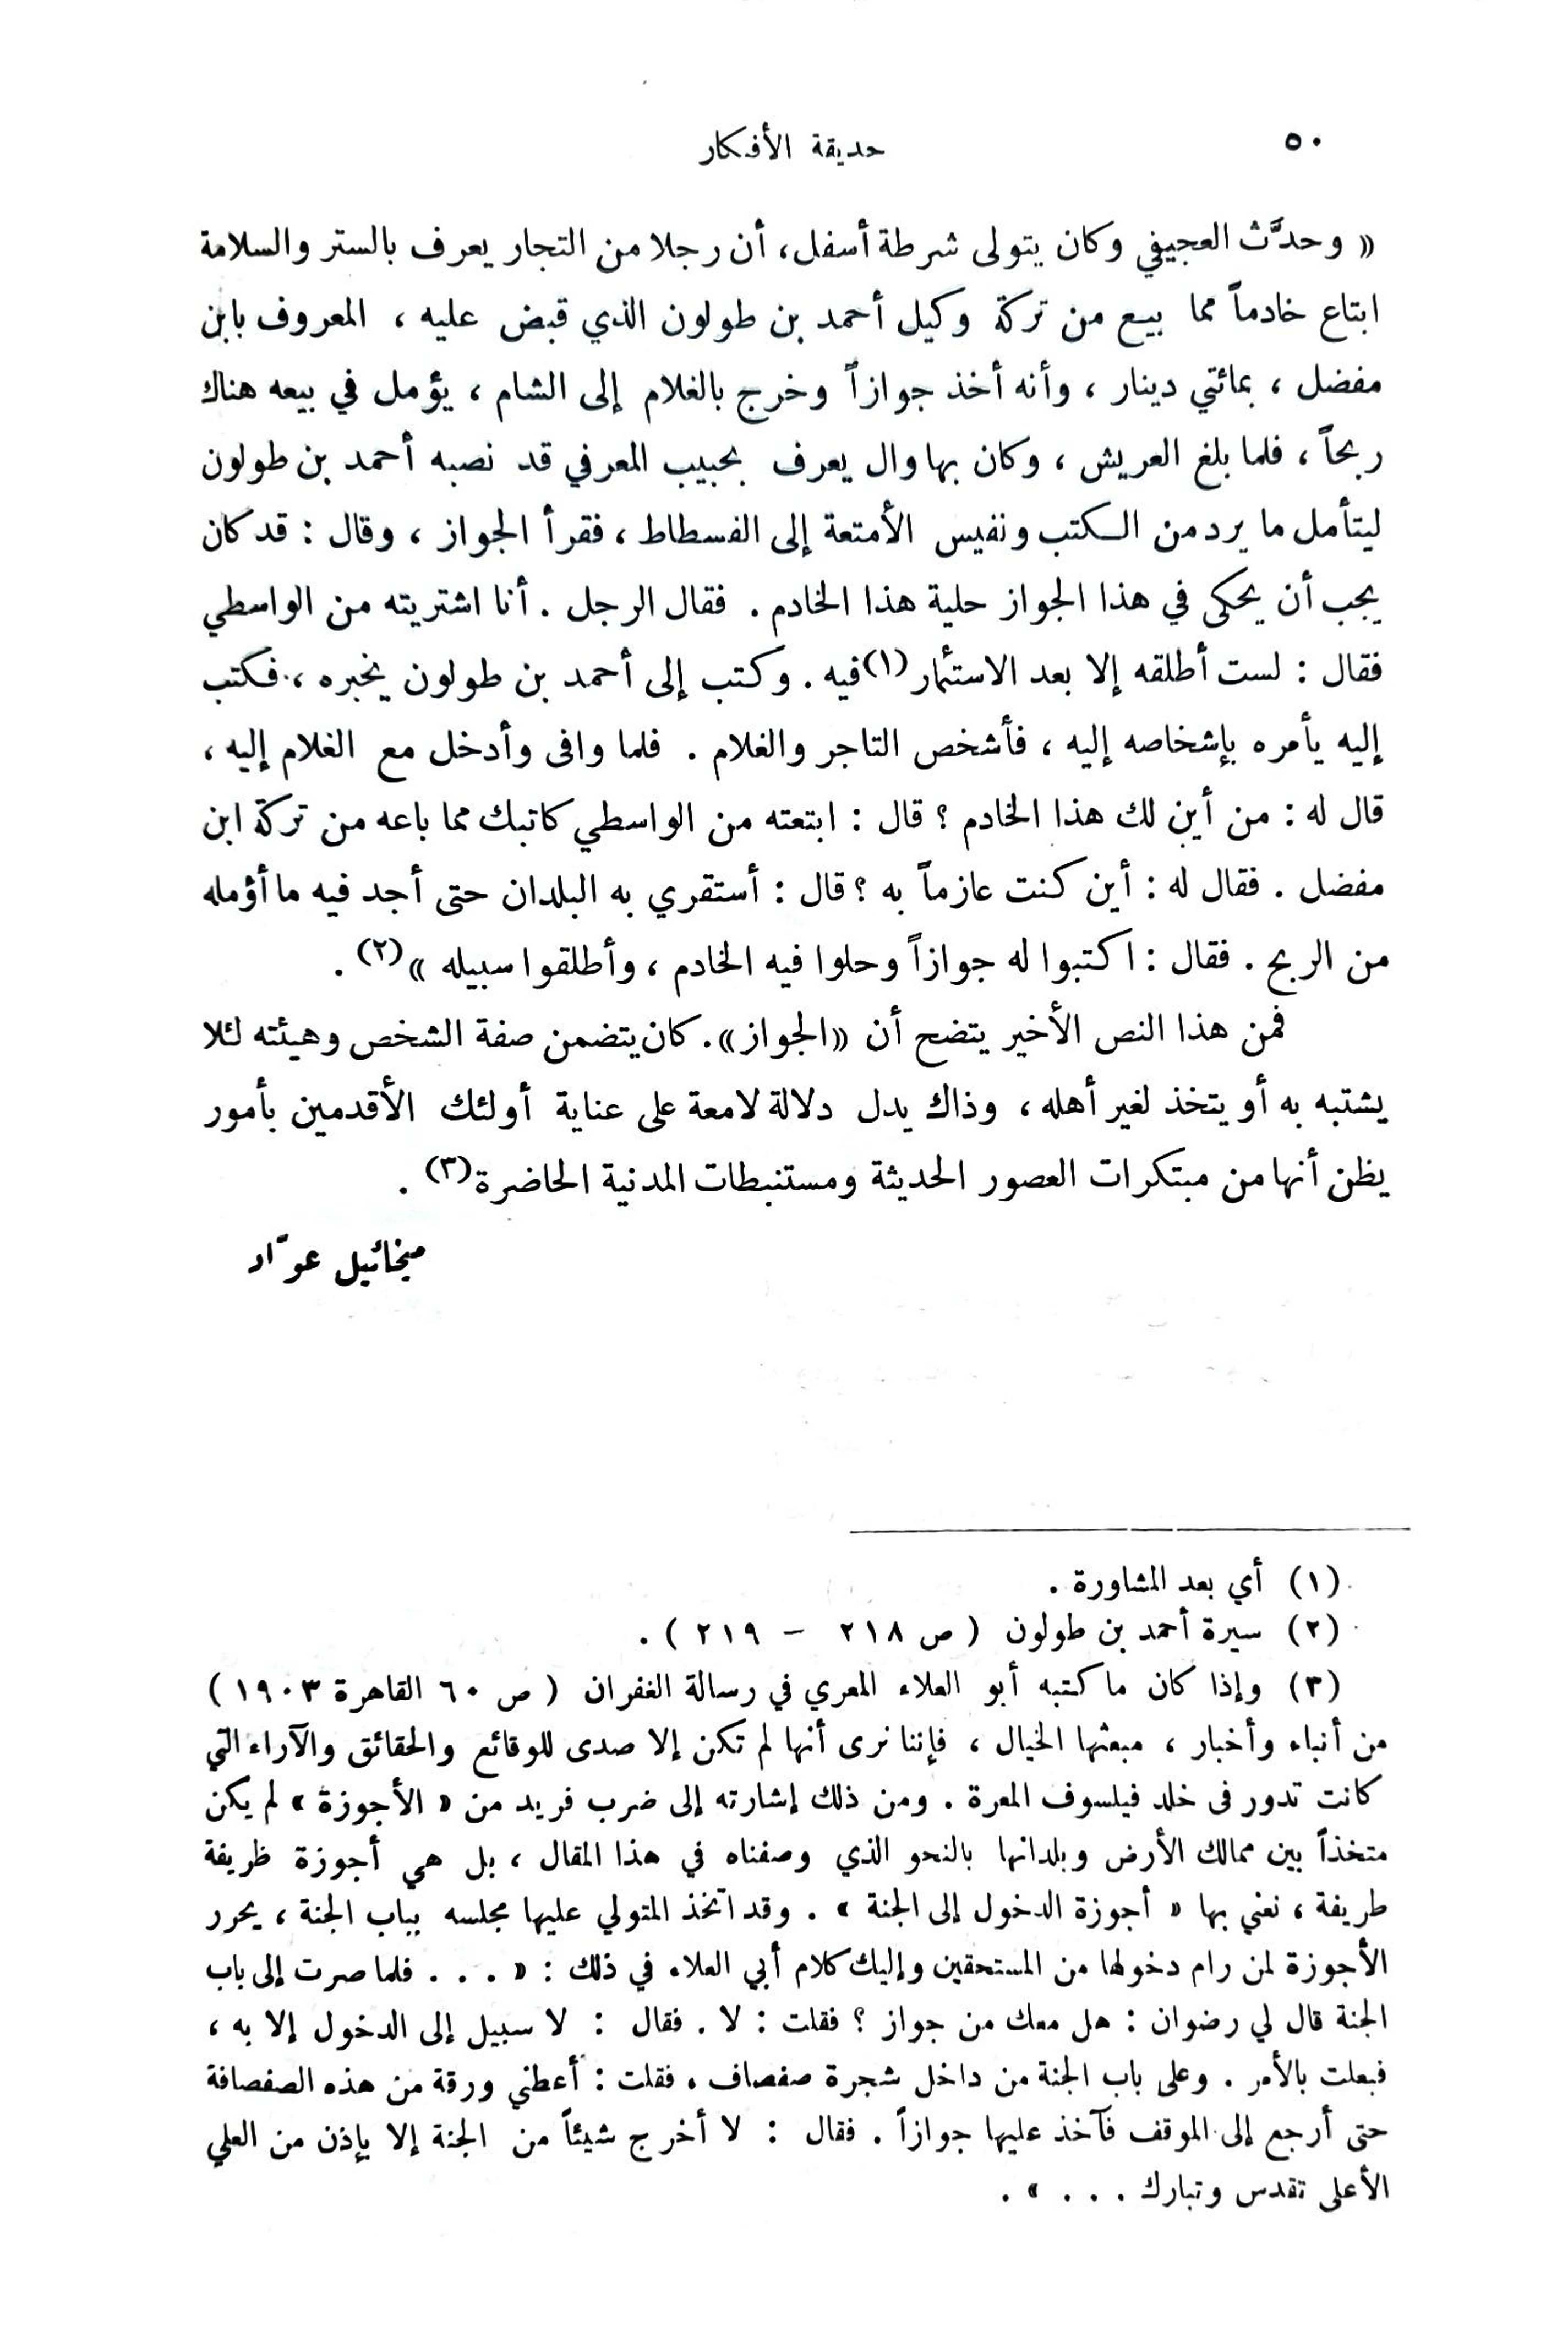 ٥٠
حديقة الأفكار
« وحدَّث العجيفي وكان يتولى شرطة أسفل، أن رجلا من التجار يعرف بالستر والسلامة
ابتاع خادماً مما بيع من تركة وكيل أحمد بن طولون الذي قبض عليه ، المعروف بابن
مفضل ، بمائتي دينار ، وأنه أخذ جوازاً وخرج بالغلام إلى الشام ، يؤمل في بيعه هناك
ربحاً ، فلما بلغ العريش ، وكان بها وال يعرف بحبيب المعرفي قد نصبه أحمد بن طولون
ليتأمل ما يرد من الكتب ونفيس الأمتعة إلى الفسطاط ، فقرأ الجواز ، وقال : قد كان
يجب أن يحكى في هذا الجواز حلية هذا الخادم . فقال الرجل . أنا اشتريته من الواسطي
فقال : لست أطلقه إلا بعد الاستئمار (١) فيه . وكتب إلى أحمد بن طولون يخبره ، فكتب
إليه يأمره بإشخاصه إليه ، فأشخص التاجر والغلام . فلما وافى وأدخل مع الغلام إليه ،
قال له : من أين لك هذا الخادم ؟ قال : ابتعته من الواسطي كاتبك مما باعه من تركة ابن
مفضل . فقال له : أين كنت عازماً به ؟ قال : أستقري به البلدان حتى أجد فيه ما أؤمله
من الربح . فقال : اكتبوا له جوازاً وحلوا فيه الخادم ، وأطلقوا سبيله » (٢) .
فمن هذا النص الأخير يتضح أن «الجواز». كان يتضمن صفة الشخص وهيئته لئلا
يشتبه به أو يتخذ لغير أهله ، وذاك يدل دلالة لامعة على عناية أولئك الأقدمين بأمور
يظن أنها من مبتكرات العصور الحديثة ومستنبطات المدنية الحاضرة (٣) .
ميخائيل عوّاد
(١) أي بعد المشاورة .
(٢) سيرة أحمد بن طولون ( ص ٢١٨ – ٢١٩ ) .
(٣) وإذا كان ما كتبه أبو العلاء المعري في رسالة الغفران ( ص ٦٠ القاهرة ١٩٠٣ )
من أنباء وأخبار ، مبعثها الخيال ، فإننا نرى أنها لم تكن إلا صدى للوقائع والحقائق والآراء التي
كانت تدور فى خلد فيلسوف المعرة . ومن ذلك إشارته إلى ضرب فريد من « الأجوزة » لم يكن
متخذاً بين ممالك الأرض وبلدانها بالنحو الذي وصفناه في هذا المقال ، بل هي أجوزة ظريفة
طريفة ، نعني بها « أجوزة الدخول إلى الجنة » . وقد اتخذ المتولي عليها مجلسه بباب الجنة ، يحرر
الأجوزة لمن رام دخولها من المستحقين وإليك كلام أبي العلاء في ذلك : « . . . فلما صرت إلى باب
الجنة قال لي رضوان : هل معك من جواز ؟ فقلت : لا . فقال : لا سبيل إلى الدخول إلا به ،
فبعلت بالأمر . وعلى باب الجنة من داخل شجرة صفصاف ، فقلت : أعطني ورقة من هذه الصفصافة
حتى أرجع إلى الموقف فآخذ عليها جوازاً . فقال : لا أخرج شيئاً من الجنة إلا بإذن من العلي
الأعلى تقدس وتبارك . . . » .